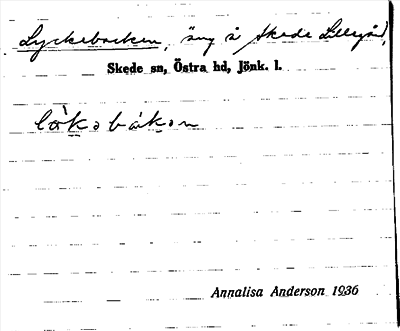 Lyckebacken, äng å Skede Lillegård,
Skede sn, Östra hd, Jönk. l.
lök₉bak₉n
Annalisa Anderson 1936